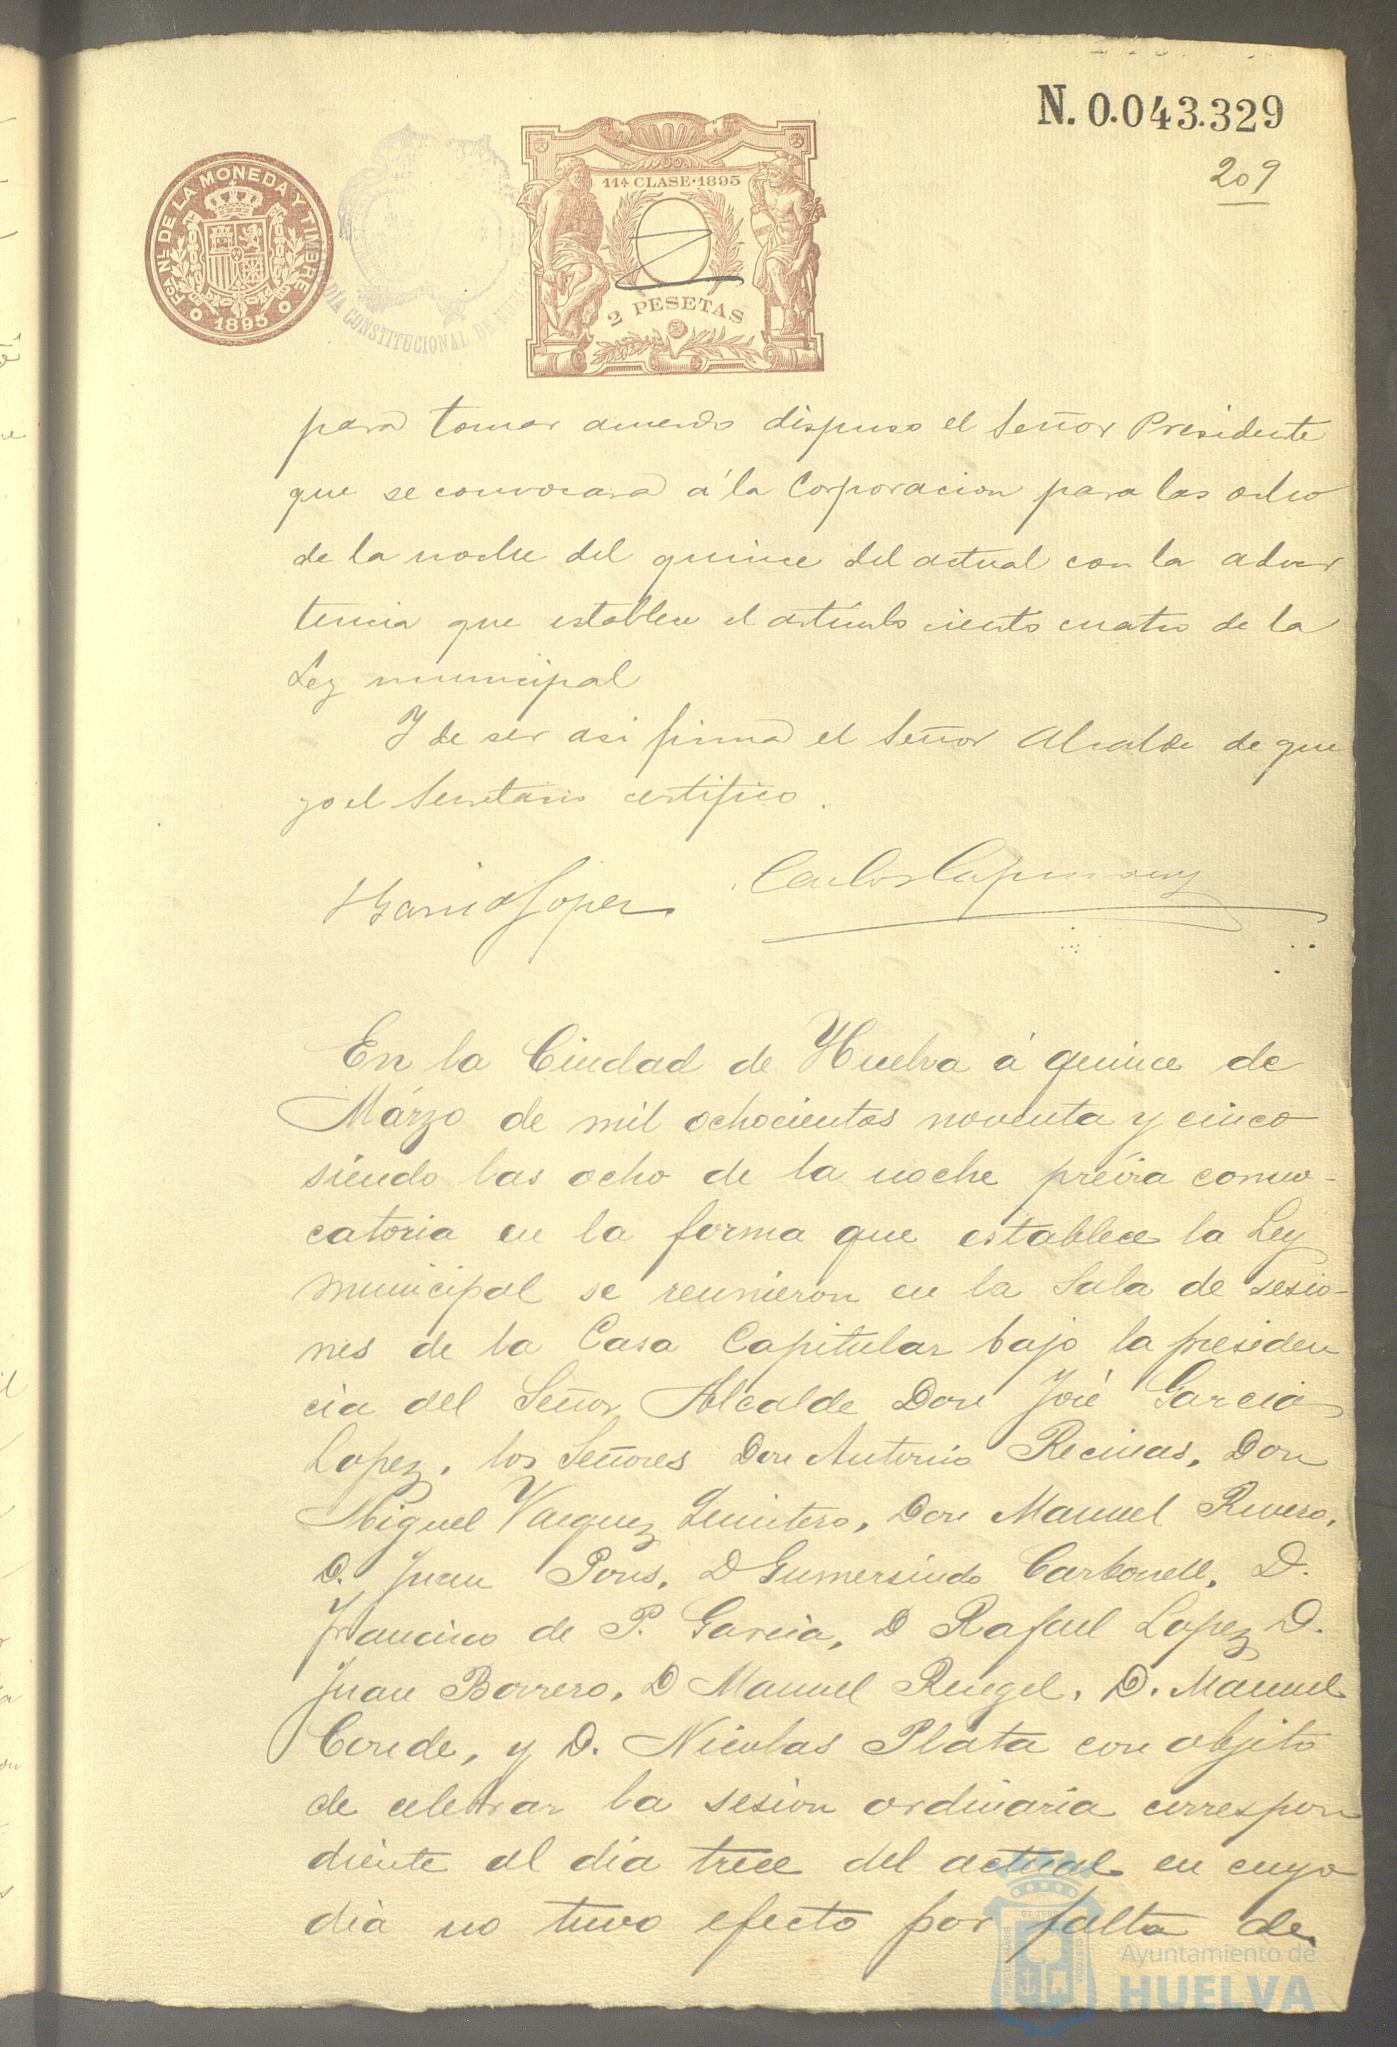 N. 0.043.329
209
FCA. NL. DE LA MONEDA Y TIMBRE
1895
DIA CONSTITUCIONAL DE
11ª CLASE·1895
2 PESETAS
para tomar acuerdo dispuso el Señor Presidente
que se convocara á la Corporacion para las ocho
de la noche del quince del actual con la adver
tencia que establece el artículo ciento cuatro de la
Ley municipal
Y de ser asi firma el Señor Alcalde de que
yo el Secretario certifico.
Garcia Lopez
Carlos
En la Ciudad de Huelva á quince de
Márzo de mil ochocientos noventa y cinco
siendo las ocho de la noche prévia convo-
catoria en la forma que establece la Ley
municipal se reunieron en la Sala de sesio-
nes de la Casa Capitular bajo la presiden
cia del Señor Alcalde Don José Garcia
Lopez, los Señores Don Antonio Recinas, Don
Miguel Vazquez Quintero, Don Manuel Rivero,
D. Juan Pons, D Gumersindo Carbonell, D.
Francisco de P. Garcia, D Rafael Lopez D.
Juan Borrero, D Manuel Rengel, D. Manuel
Conde, y D. Nicolas Plata con objeto
de celebrar la sesion ordinaria correspon
diente al dia trece del actual en cuyo
dia no tuvo efecto por falta de
Ayuntamiento de
HUELVA